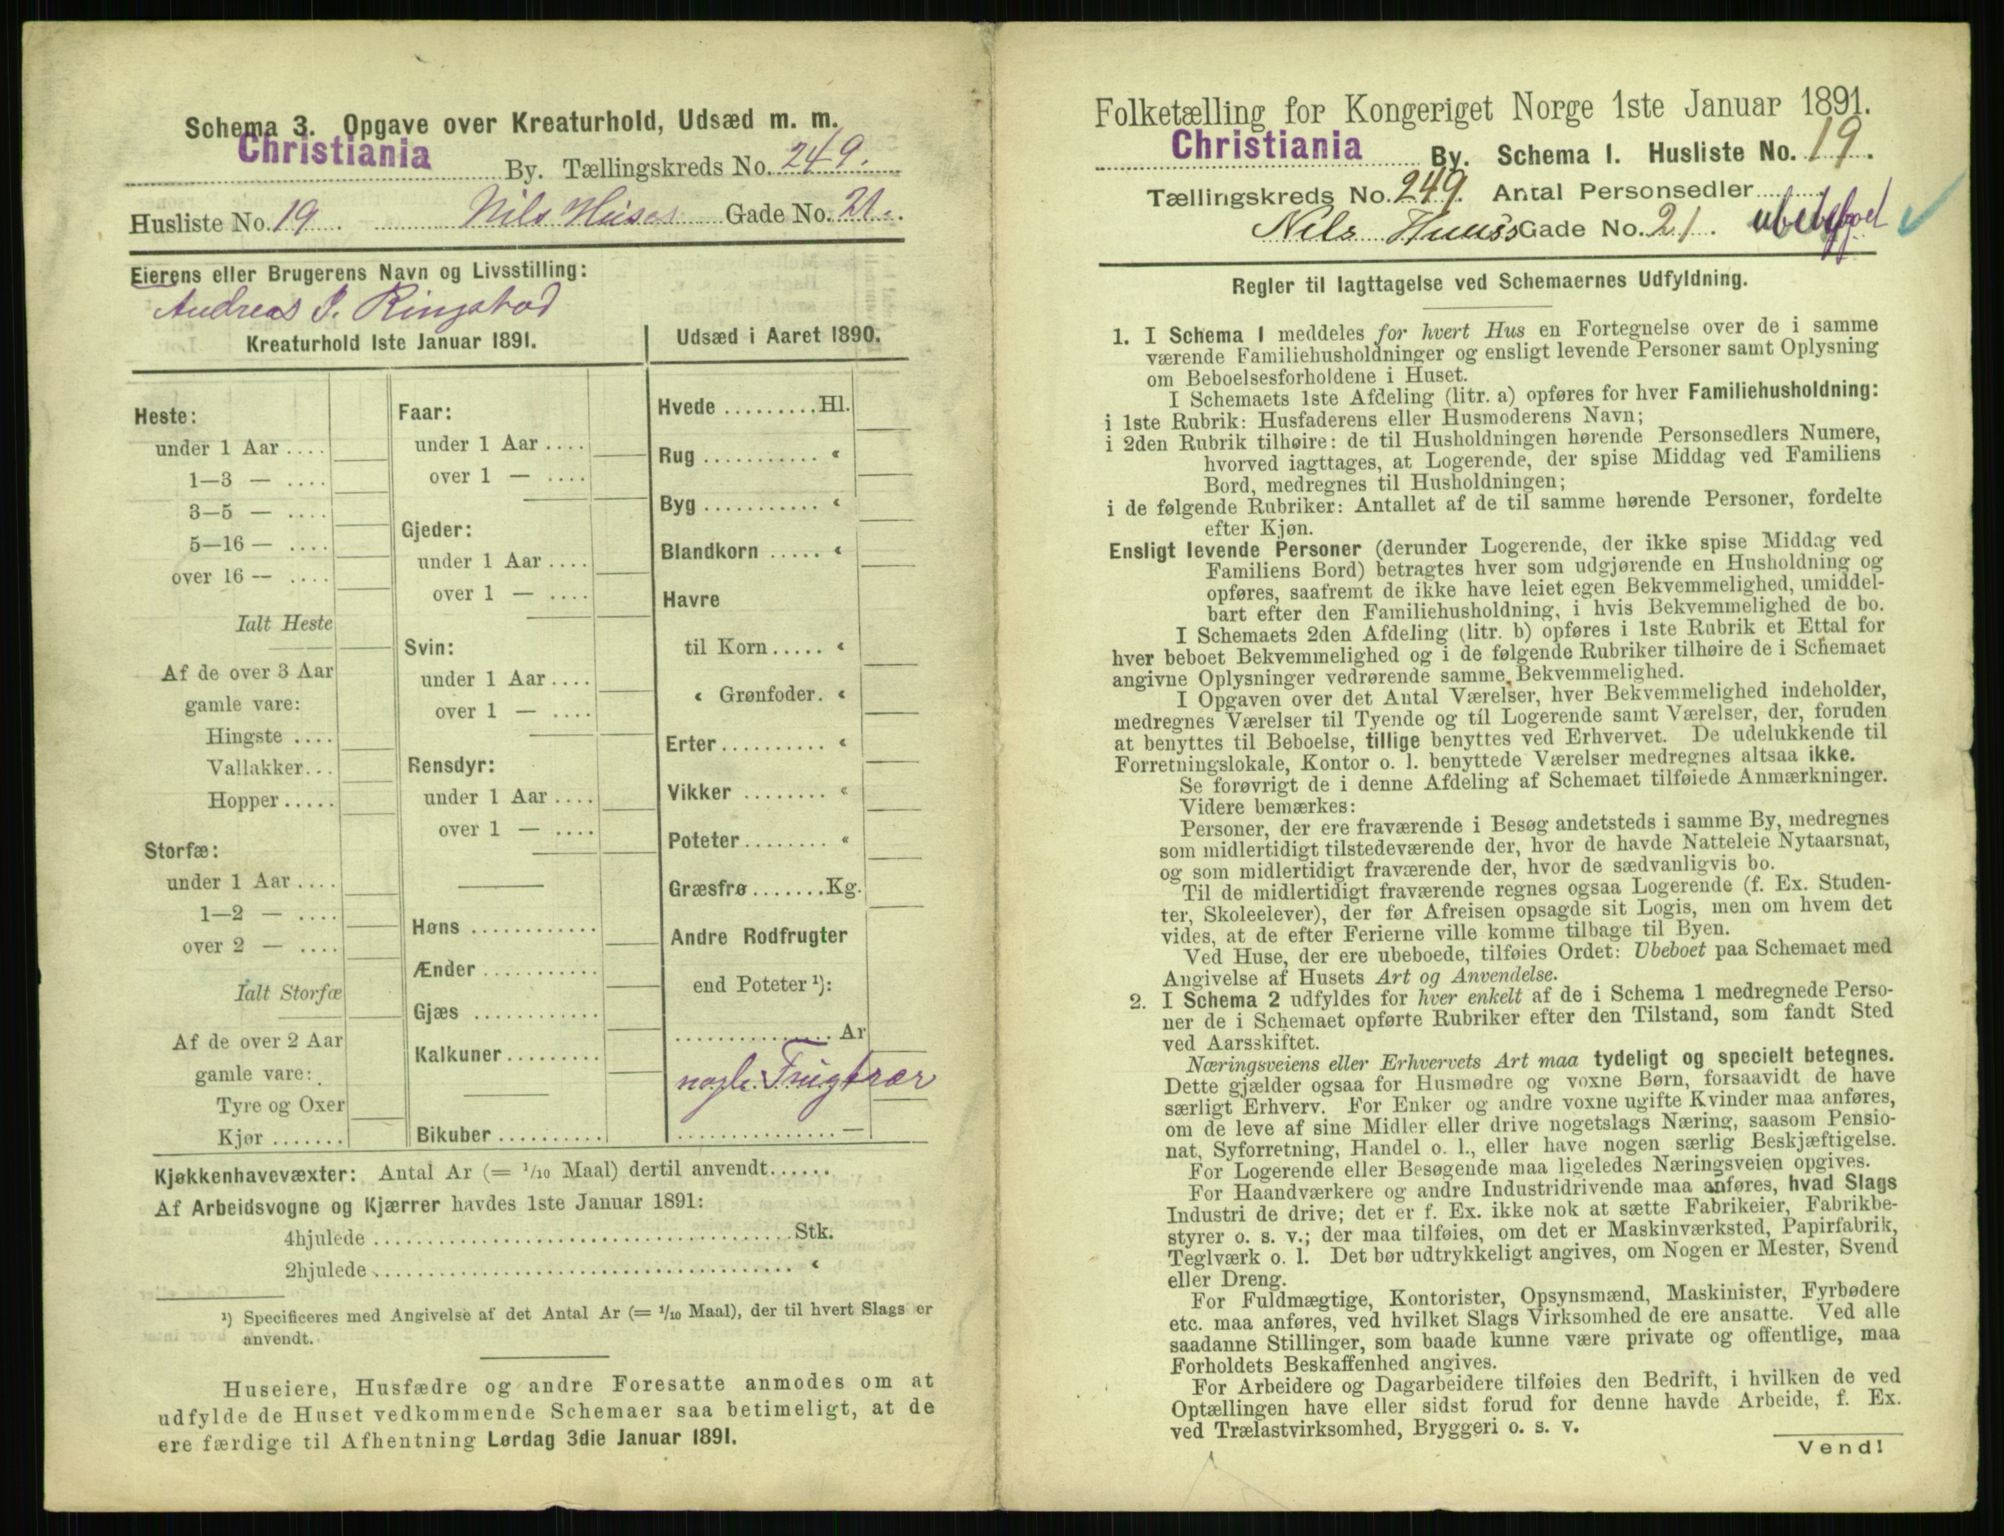 Schema 3. Opgave over Kreaturhold, Udsæd m. m.
Christiania By. Tællingskreds No. 249.
Husliste No. 19. Nils Huses Gade No. 21.
Eierens eller Brugerens Navn og Livsstilling:
Andreas J. Ringstad
Kreaturhold 1ste Januar 1891.
Heste:
under 1 Aar ....
1—3 — ....
3—5 — ....
5—16 — ....
over 16 — ....
Ialt Heste
Af de over 3 Aar
gamle vare:
Hingste ....
Vallakker...
Hopper.....
Storfæ:
under 1 Aar....
1—2 — ....
over 2 — ....
Ialt Storfæ
Af de over 2 Aar
gamle vare:
Tyre og Oxer
Kjør .......
Faar:
under 1 Aar ....
over 1 — ....
Gjeder:
under 1 Aar ....
over 1 — ....
Svin:
under 1 Aar....
over 1 — ....
Rensdyr:
under 1 Aar ....
over 1 — ....
Høns ............
Ænder ...........
Gjæs ............
Kalkuner.........
Bikuber ..........
Udsæd i Aaret 1890.
Hvede .........Hl.
Rug ........... “
Byg ........... “
Blandkorn ..... “
Havre
til Korn..... “
“ Grønfoder. “
Erter.......... “
Vikker ........ “
Poteter........ “
Græsfrø.......Kg.
Andre Rodfrugter
end Poteter ¹):
............... Ar
nogle Frugtrær
............... —
Kjøkkenhavevæxter: Antal Ar (= 1/10 Maal) dertil anvendt......
Af Arbeidsvogne og Kjærrer havdes 1ste Januar 1891:
4hjulede ........................................Stk.
2hjulede ........................................ “
¹) Specificeres med Angivelse af det Antal Ar (= 1/10 Maal), der til hvert Slags er
anvendt.
Huseiere, Husfædre og andre Foresatte anmodes om at
udfylde de Huset vedkommende Schemaer saa betimeligt, at de
ere færdige til Afhentning Lørdag 3die Januar 1891.
Folketælling for Kongeriget Norge 1ste Januar 1891.
Christiania By. Schema 1. Husliste No. 19.
Tællingskreds No. 249. Antal Personsedler
Nils Huus's Gade No. 21. ubeboet
Regler til Iagttagelse ved Schemaernes Udfyldning.
1. I Schema 1 meddeles for hvert Hus en Fortegnelse over de i samme
værende Familiehusholdninger og ensligt levende Personer samt Oplysning
om Beboelsesforholdene i Huset.
I Schemaets 1ste Afdeling (litr. a) opføres for hver Familiehusholdning:
i 1ste Rubrik: Husfaderens eller Husmoderens Navn;
i 2den Rubrik tilhøire: de til Husholdningen hørende Personsedlers Numere,
hvorved iagttages, at Logerende, der spise Middag ved Familiens
Bord, medregnes til Husholdningen;
i de følgende Rubriker: Antallet af de til samme hørende Personer, fordelte
efter Kjøn.
Ensligt levende Personer (derunder Logerende, der ikke spise Middag ved
Familiens Bord) betragtes hver som udgjørende en Husholdning og
opføres, saafremt de ikke have leiet egen Bekvemmelighed, umiddel-
bart efter den Familiehusholdning, i hvis Bekvemmelighed de bo.
I Schemaets 2den Afdeling (litr. b) opføres i 1ste Rubrik et Ettal for
hver beboet Bekvemmelighed og i de følgende Rubriker tilhøire de i Schemaet
angivne Oplysninger vedrørende samme Bekvemmelighed.
I Opgaven over det Antal Værelser, hver Bekvemmelighed indeholder,
medregnes Værelser til Tyende og til Logerende samt Værelser, der, foruden
at benyttes til Beboelse, tillige benyttes ved Erhvervet. De udelukkende til
Forretningslokale, Kontor o. l. benyttede Værelser medregnes altsaa ikke.
Se forøvrigt de i denne Afdeling af Schemaet tilføiede Anmærkninger.
Videre bemærkes:
Personer, der ere fraværende i Besøg andetsteds i samme By, medregnes
som midlertidigt tilstedeværende der, hvor de havde Natteleie Nytaarsnat,
og som midlertidigt fraværende der, hvor de sædvanligvis bo.
Til de midlertidigt fraværende regnes ogsaa Logerende (f. Ex. Studen-
ter, Skoleelever), der før Afreisen opsagde sit Logis, men om hvem det
vides, at de efter Ferierne ville komme tilbage til Byen.
Ved Huse, der ere ubeboede, tilføies Ordet: Ubeboet paa Schemaet med
Angivelse af Husets Art og Anvendelse.
2. I Schema 2 udfyldes for hver enkelt af de i Schema 1 medregnede Perso-
ner de i Schemaet opførte Rubriker efter den Tilstand, som fandt Sted
ved Aarsskiftet.
Næringsveiens eller Erhvervets Art maa tydeligt og specielt betegnes.
Dette gjælder ogsaa for Husmødre og voxne Børn, forsaavidt de have
særligt Erhverv. For Enker og andre voxne ugifte Kvinder maa anføres,
om de leve af sine Midler eller drive nogetslags Næring, saasom Pensio-
nat, Syforretning, Handel o. l., eller have nogen særlig Beskjæftigelse.
For Logerende eller Besøgende maa ligeledes Næringsveien opgives.
For Haandværkere og andre Industridrivende maa anføres, hvad Slags
Industri de drive; det er f. Ex. ikke nok at sætte Fabrikeier, Fabrikbe-
styrer o. s. v.; der maa tilføies, om det er Maskinværksted, Papirfabrik,
Teglværk o. l. Det bør udtrykkeligt angives, om Nogen er Mester, Svend
eller Dreng.
For Fuldmægtige, Kontorister, Opsynsmænd, Maskinister, Fyrbødere
etc. maa anføres, ved hvilket Slags Virksomhed de ere ansatte. Ved alle
saadanne Stillinger, som baade kunne være private og offentlige, maa
Forholdets Beskaffenhed angives.
For Arbeidere og Dagarbeidere tilføies den Bedrift, i hvilken de ved
Optællingen have eller sidst forud for denne havde Arbeide, f. Ex.
ved Trælastvirksomhed, Bryggeri o. s. v.
Vend!